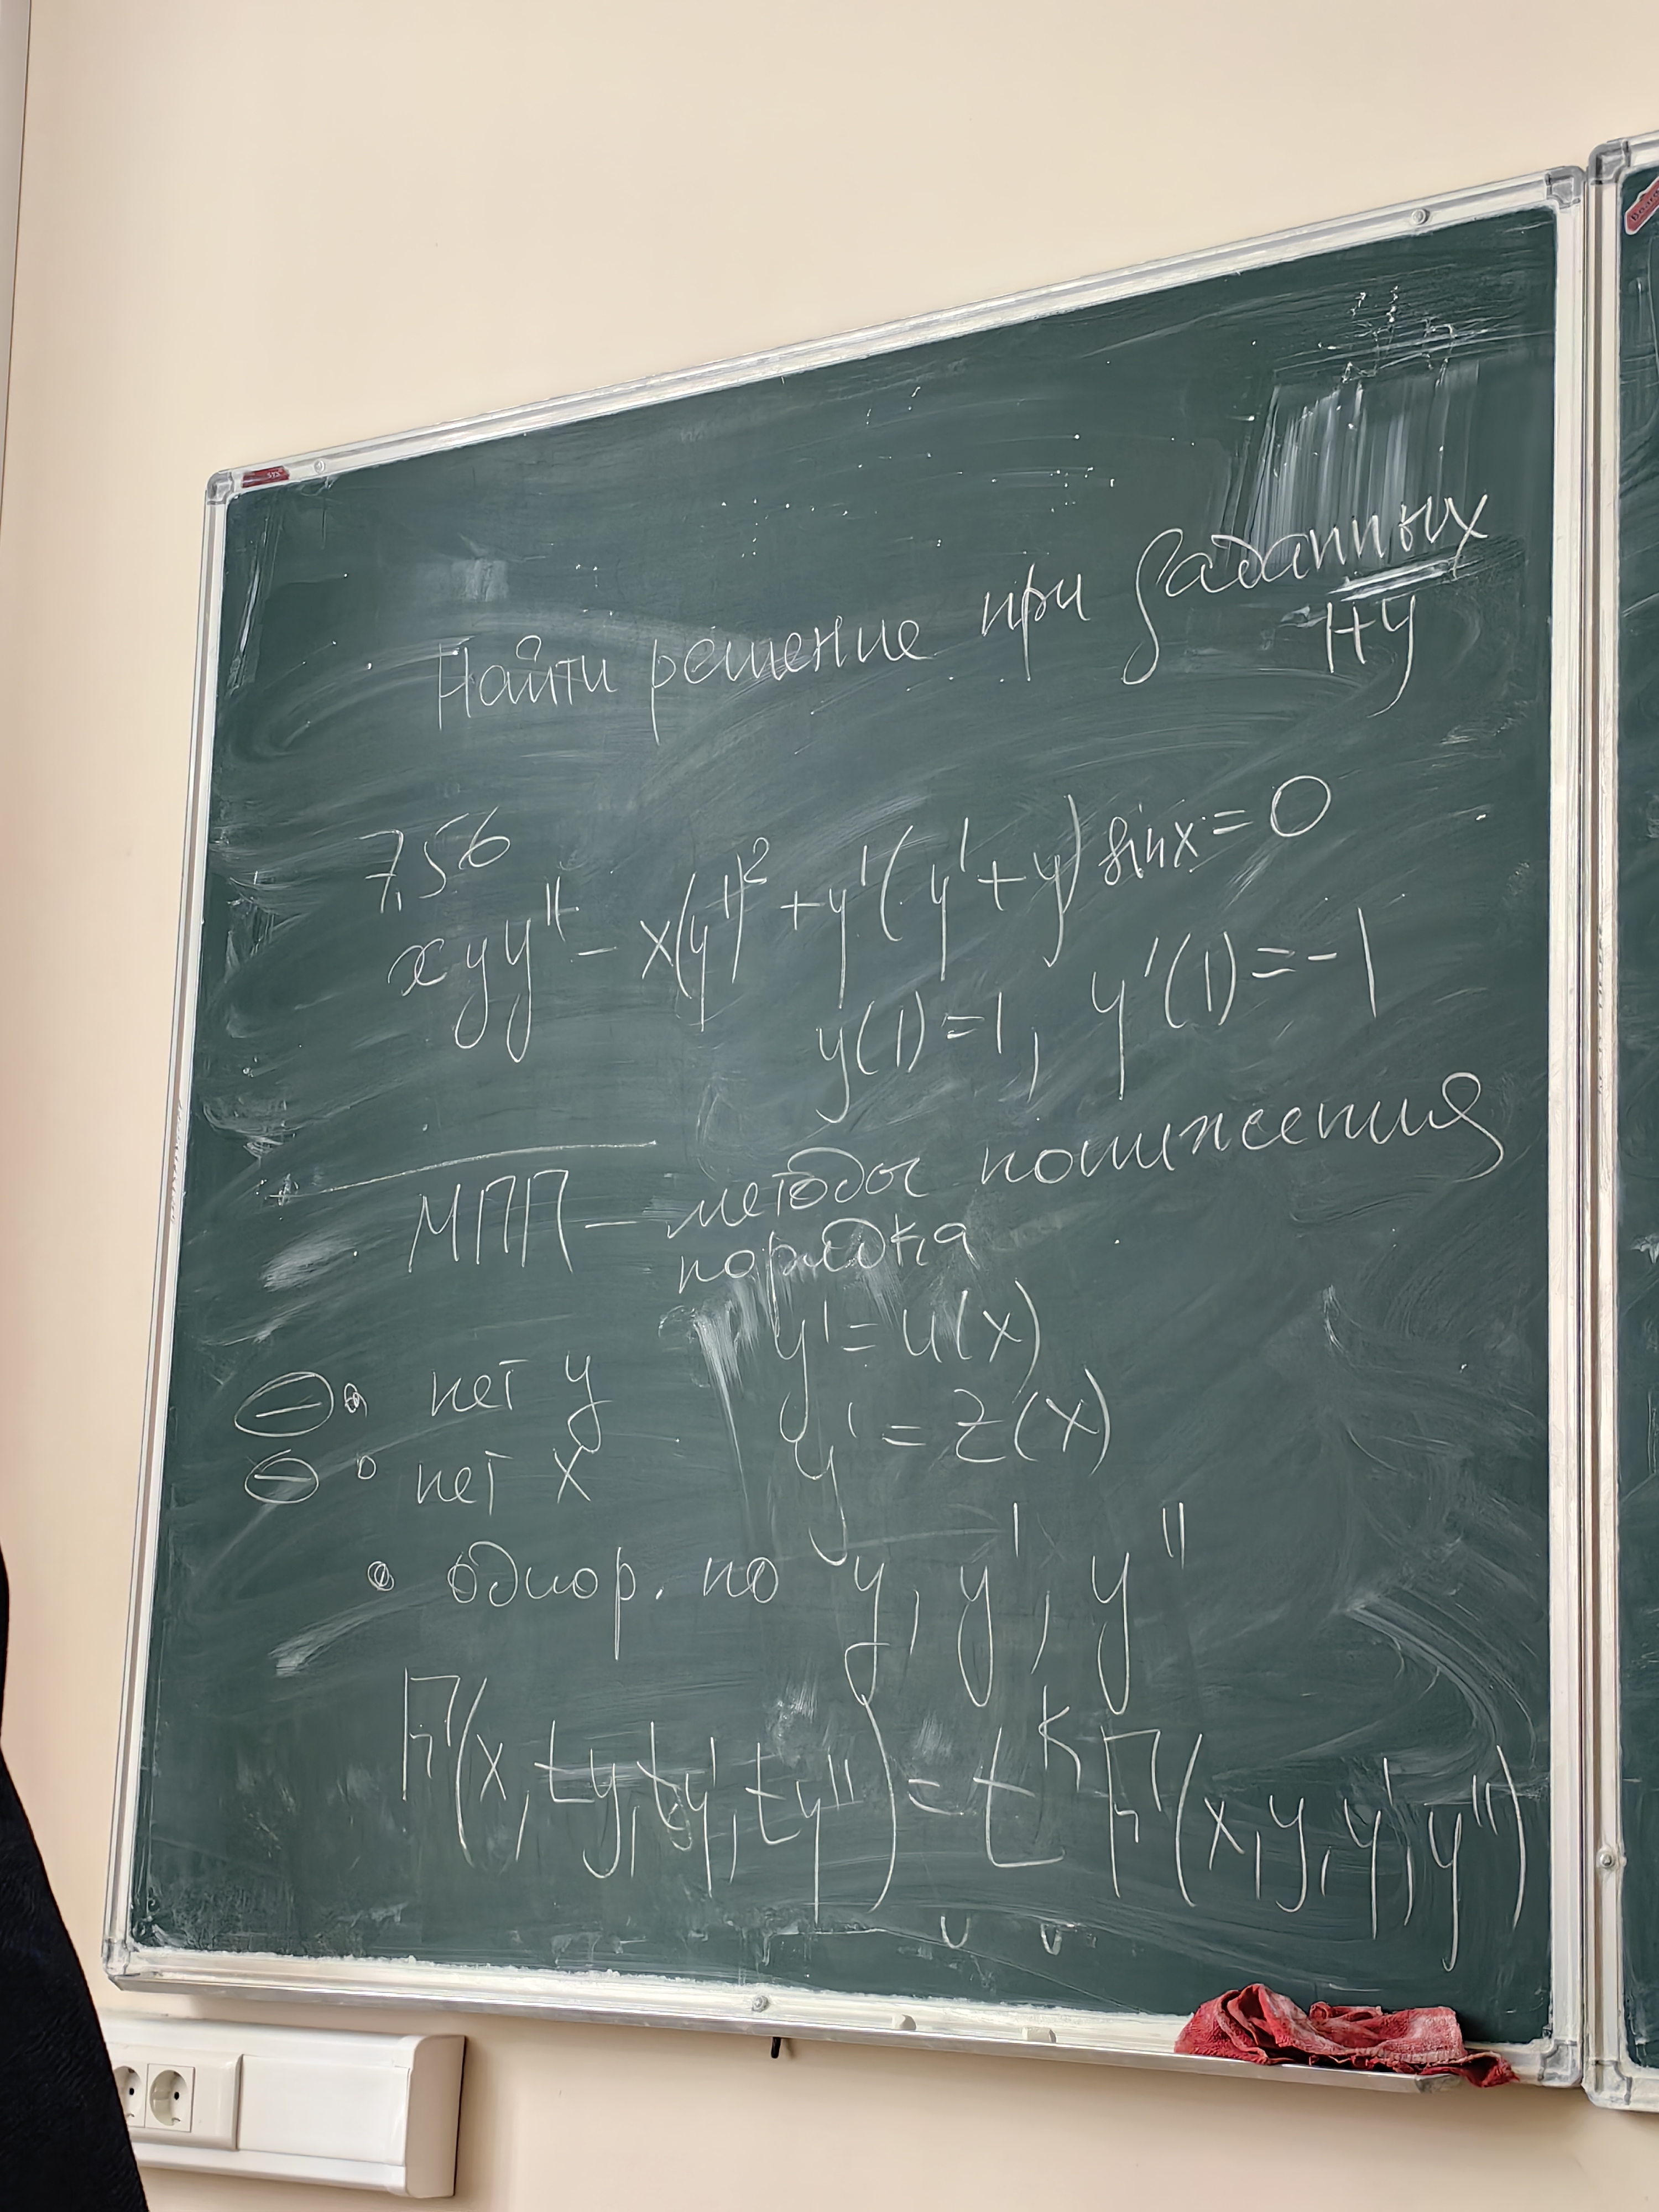 Найти решение при заданных
НУ
7,56
xyy'' - x(y')² + y'(y'+y) sinx = 0
y(1)=1, y'(1)=-1
МПП – методы понижения
порядка
⊖ • нет y y' = u(x)
⊖ • нет x y' = z(x)
• однор. по y, y', y''
F(x, ty, ty', ty'') = t^k F(x, y, y', y'')